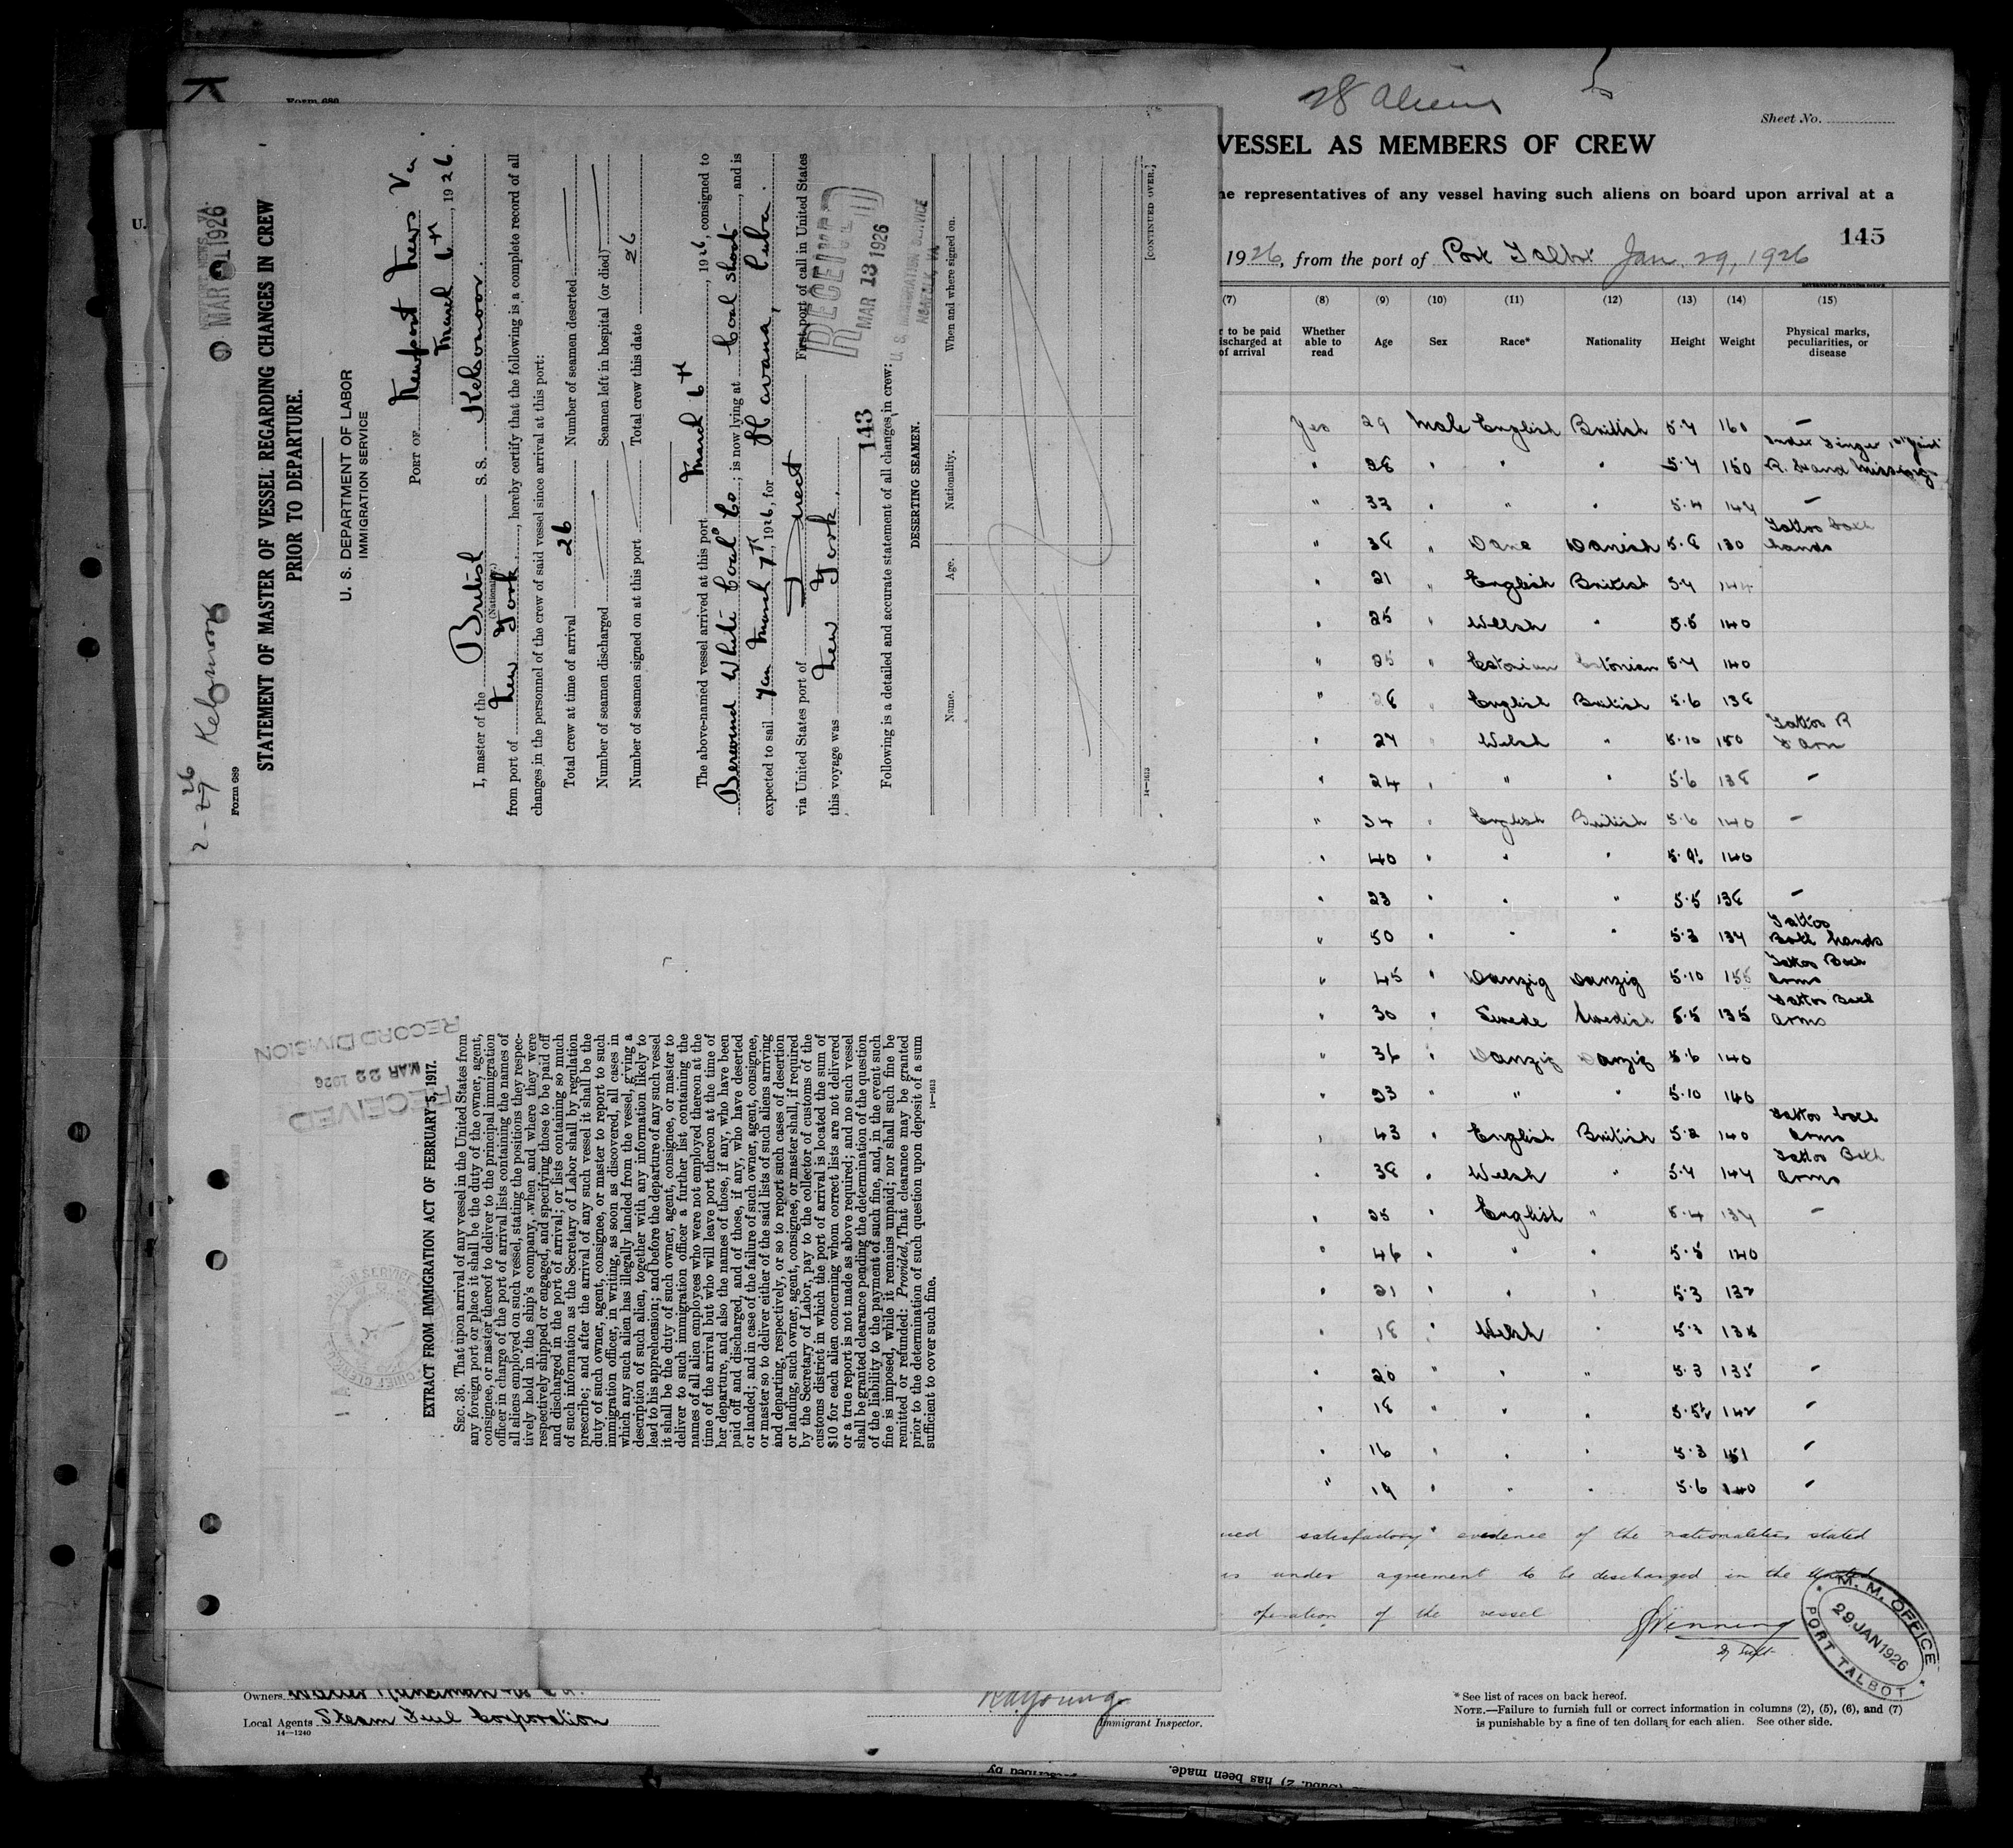 Form 689
2-27 26 Kelsomoor
MAR 9 1926
STATEMENT OF MASTER OF VESSEL REGARDING CHANGES IN CREW
PRIOR TO DEPARTURE.
U. S. DEPARTMENT OF LABOR
IMMIGRATION SERVICE
PORT OF Newport News Va
March 6th, 1926.
I, master of the British S. S. Kelsomoor.
(Nationality.)
from port of New York, hereby certify that the following is a complete record of all
changes in the personnel of the crew of said vessel since arrival at this port:
Total crew at time of arrival 26 Number of seamen deserted
Number of seamen discharged Seamen left in hospital (or died)
Number of seamen signed on at this port Total crew this date 26
The above-named vessel arrived at this port March 6th, 1926, consigned to
Berwind White Coal Co; is now lying at Coal Shoot, and is
expected to sail March 7th, 1926, for Havana, Cuba.
via United States port of Direct First port of call in United States
this voyage was New York.
RECEIVED
MAR 13 1926
U. S. IMMIGRATION SERVICE
NORFOLK, VA.
143
Following is a detailed and accurate statement of all changes in crew:
DESERTING SEAMEN.
Name. Age. Nationality. When and where signed on.
14—1613 [CONTINUED OVER.]
RECEIVED
MAR 22 1926
RECORD DIVISION
EXTRACT FROM IMMIGRATION ACT OF FEBRUARY 5, 1917.
SEC. 36. That upon arrival of any vessel in the United States from
any foreign port or place it shall be the duty of the owner, agent,
consignee, or master thereof to deliver to the principal immigration
officer in charge of the port of arrival lists containing the names of
all aliens employed on such vessel, stating the positions they respec-
tively hold in the ship's company, when and where they were
respectively shipped or engaged, and specifying those to be paid off
and discharged in the port of arrival; or lists containing so much
of such information as the Secretary of Labor shall by regulation
prescribe; and after the arrival of any such vessel it shall be the
duty of such owner, agent, consignee, or master to report to such
immigration officer, in writing, as soon as discovered, all cases in
which any such alien has illegally landed from the vessel, giving a
description of such alien, together with any information likely to
lead to his apprehension; and before the departure of any such vessel
it shall be the duty of such owner, agent, consignee, or master to
deliver to such immigration officer a further list containing the
names of all alien employees who were not employed thereon at the
time of the arrival but who will leave port thereon at the time of
her departure, and also the names of those, if any, who have been
paid off and discharged, and of those, if any, who have deserted
or landed; and in case of the failure of such owner, agent, consignee,
or master so to deliver either of the said lists of such aliens arriving
and departing, respectively, or so to report such cases of desertion
or landing, such owner, agent, consignee, or master shall, if required
by the Secretary of Labor, pay to the collector of customs of the
customs district in which the port of arrival is located the sum of
$10 for each alien concerning whom correct lists are not delivered
or a true report is not made as above required; and no such vessel
shall be granted clearance pending the determination of the question
of the liability to the payment of such fine, and, in the event such
fine is imposed, while it remains unpaid; nor shall such fine be
remitted or refunded: Provided, That clearance may be granted
prior to the determination of such question upon deposit of a sum
sufficient to cover such fine.
14—1613
28 Aliens
Sheet No.
VESSEL AS MEMBERS OF CREW
representatives of any vessel having such aliens on board upon arrival at a
145
1926, from the port of Port Talbot Jan. 29, 1926
(7) (8) (9) (10) (11) (12) (13) (14) (15)
to be paid discharged at of arrival Whether able to read Age Sex Race* Nationality Height Weight Physical marks, peculiarities, or disease
Yes 29 Male English British 5.7 160 —
" 28 " " " 5.7 150 Index Finger, 1st Joint R. Hand Missing
" 33 " " " 5.4 147 —
" 38 " Dane Danish 5.8 130 Tattoo Both hands
" 21 " English British 5.7 144
" 25 " Welsh " 5.5 140
" 25 " Estonian Estonian 5.7 140
" 28 " English British 5.6 138
" 27 " Welsh " 5.10 150 Tattoo R F Arm
" 24 " " " 5.6 138 —
" 34 " English British 5.6 140 —
" 40 " " " 5.9½ 140
" 23 " " " 5.5 138 —
" 50 " " " 5.3 137 Tattoo Both hands
" 45 " Danzig Danzig 5.10 155 Tattoo Both Arms
" 30 " Swede Swedish 5.5 135 Tattoo Both Arms
" 36 " Danzig Danzig 5.6 140
" 23 " " " 5.10 140
" 43 " English British 5.2 140 Tattoo both Arms
" 38 " Welsh " 5.7 147 Tattoo Both Arms
" 25 " English " 5.4 137 —
" 46 " " " 5.5 140
" 21 " " " 5.3 132
" 18 " Welsh " 5.3 135
" 20 " " " 5.3 135 —
" 18 " " " 5.5½ 142 —
" 16 " " " 5.3 151 —
" 19 " " " 5.6 140 —
satisfactory evidence of the nationalities stated
under agreement to be discharged in the United
operation of the vessel
M. M. OFFICE
29 JAN 1926
PORT TALBOT
Owners Walter Runciman
Local Agents Steam Fuel Corporation
14—1240
Immigrant Inspector.
* See list of races on back hereof.
NOTE.—Failure to furnish full or correct information in columns (2), (5), (6), and (7)
is punishable by a fine of ten dollars for each alien. See other side.
has been made.